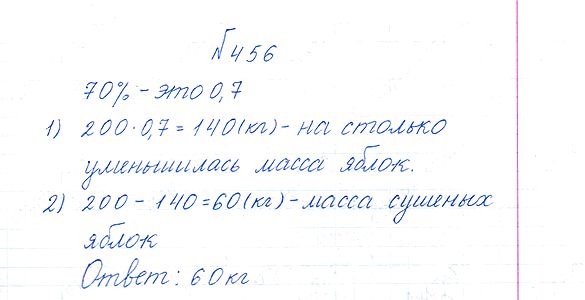 №456
70% - это 0,7
1) 200·0,7=140(кг) - на столько
уменьшилась масса яблок.
2) 200 - 140=60(кг) - масса сушеных
яблок
Ответ: 60кг